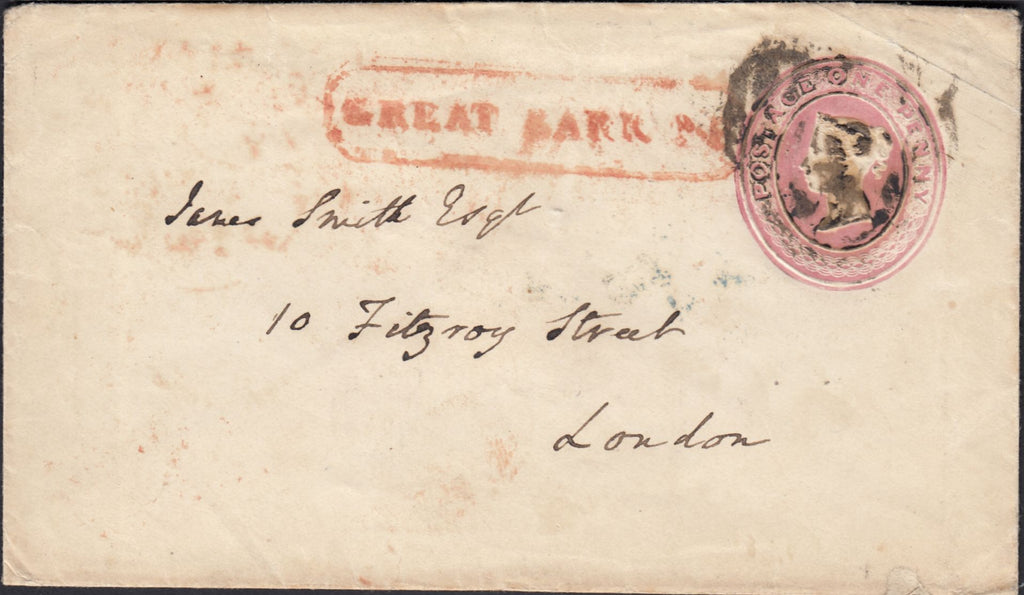 GREAT BARR
POSTAGE ONE PENNY
James Smith Esqr
10 Fitzroy Street
London